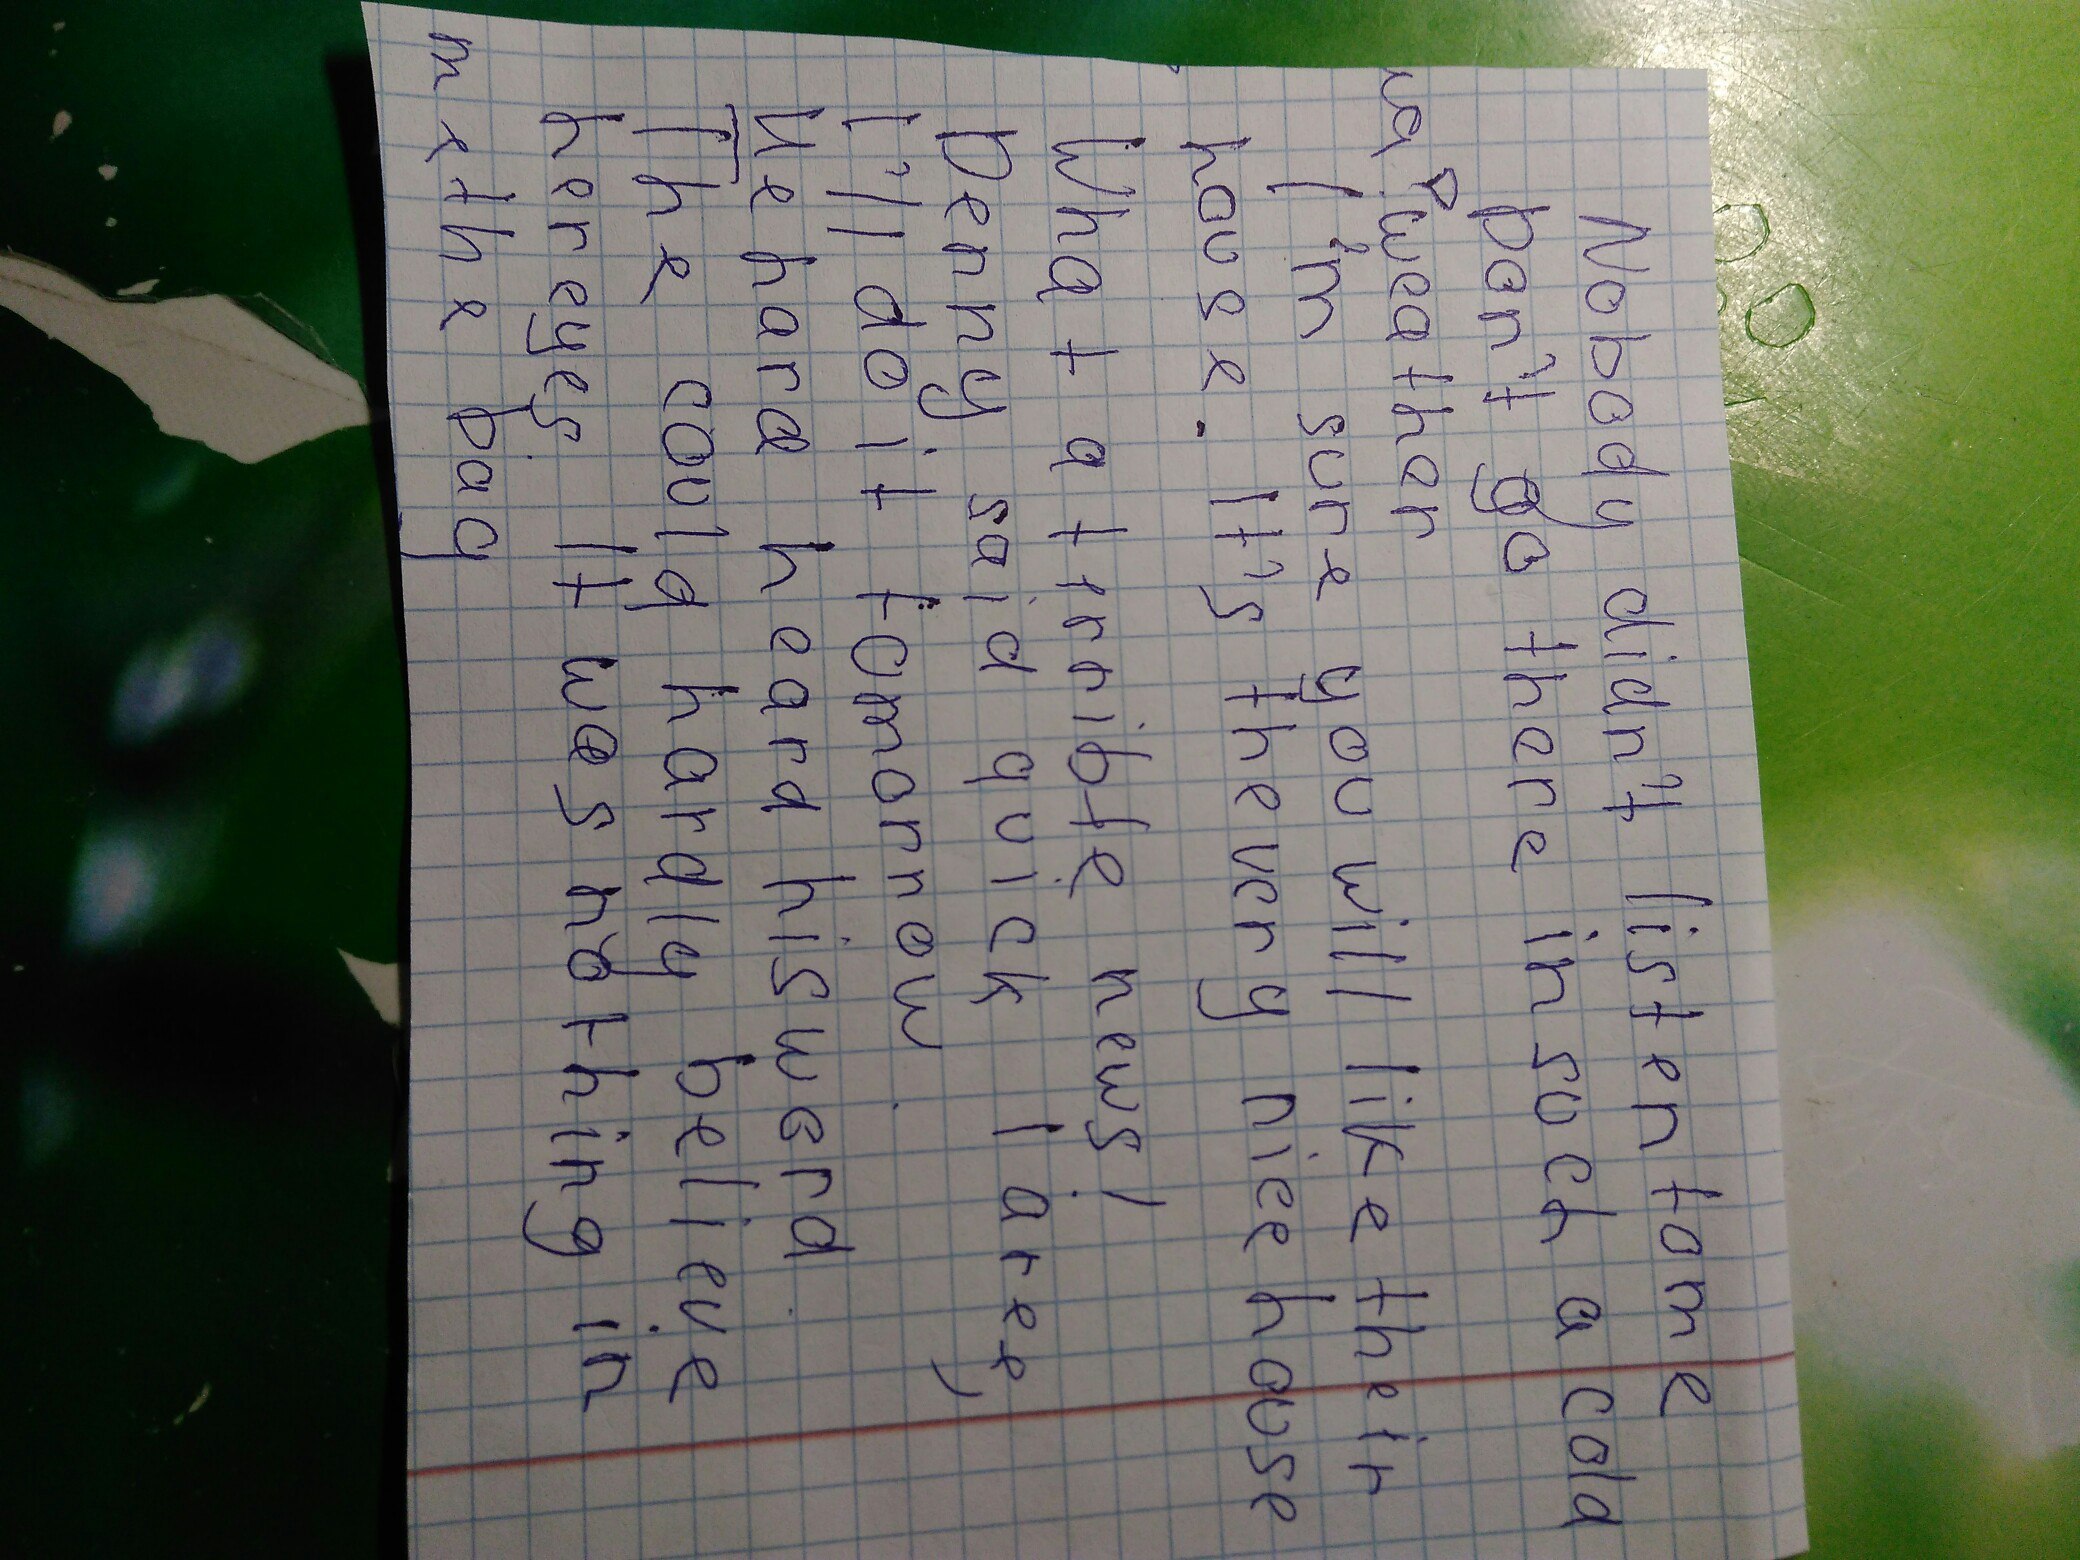 Nobody didn't listen to me
Don't go there in such a cold
weather
I'm sure you will like their
house. It's the very nice house
What a terrible news!
Denny said quick I aree,
I'll do it tomorrow.
He hara heard his word.
The could hardly believe
her eyes It was nothing in
the bag